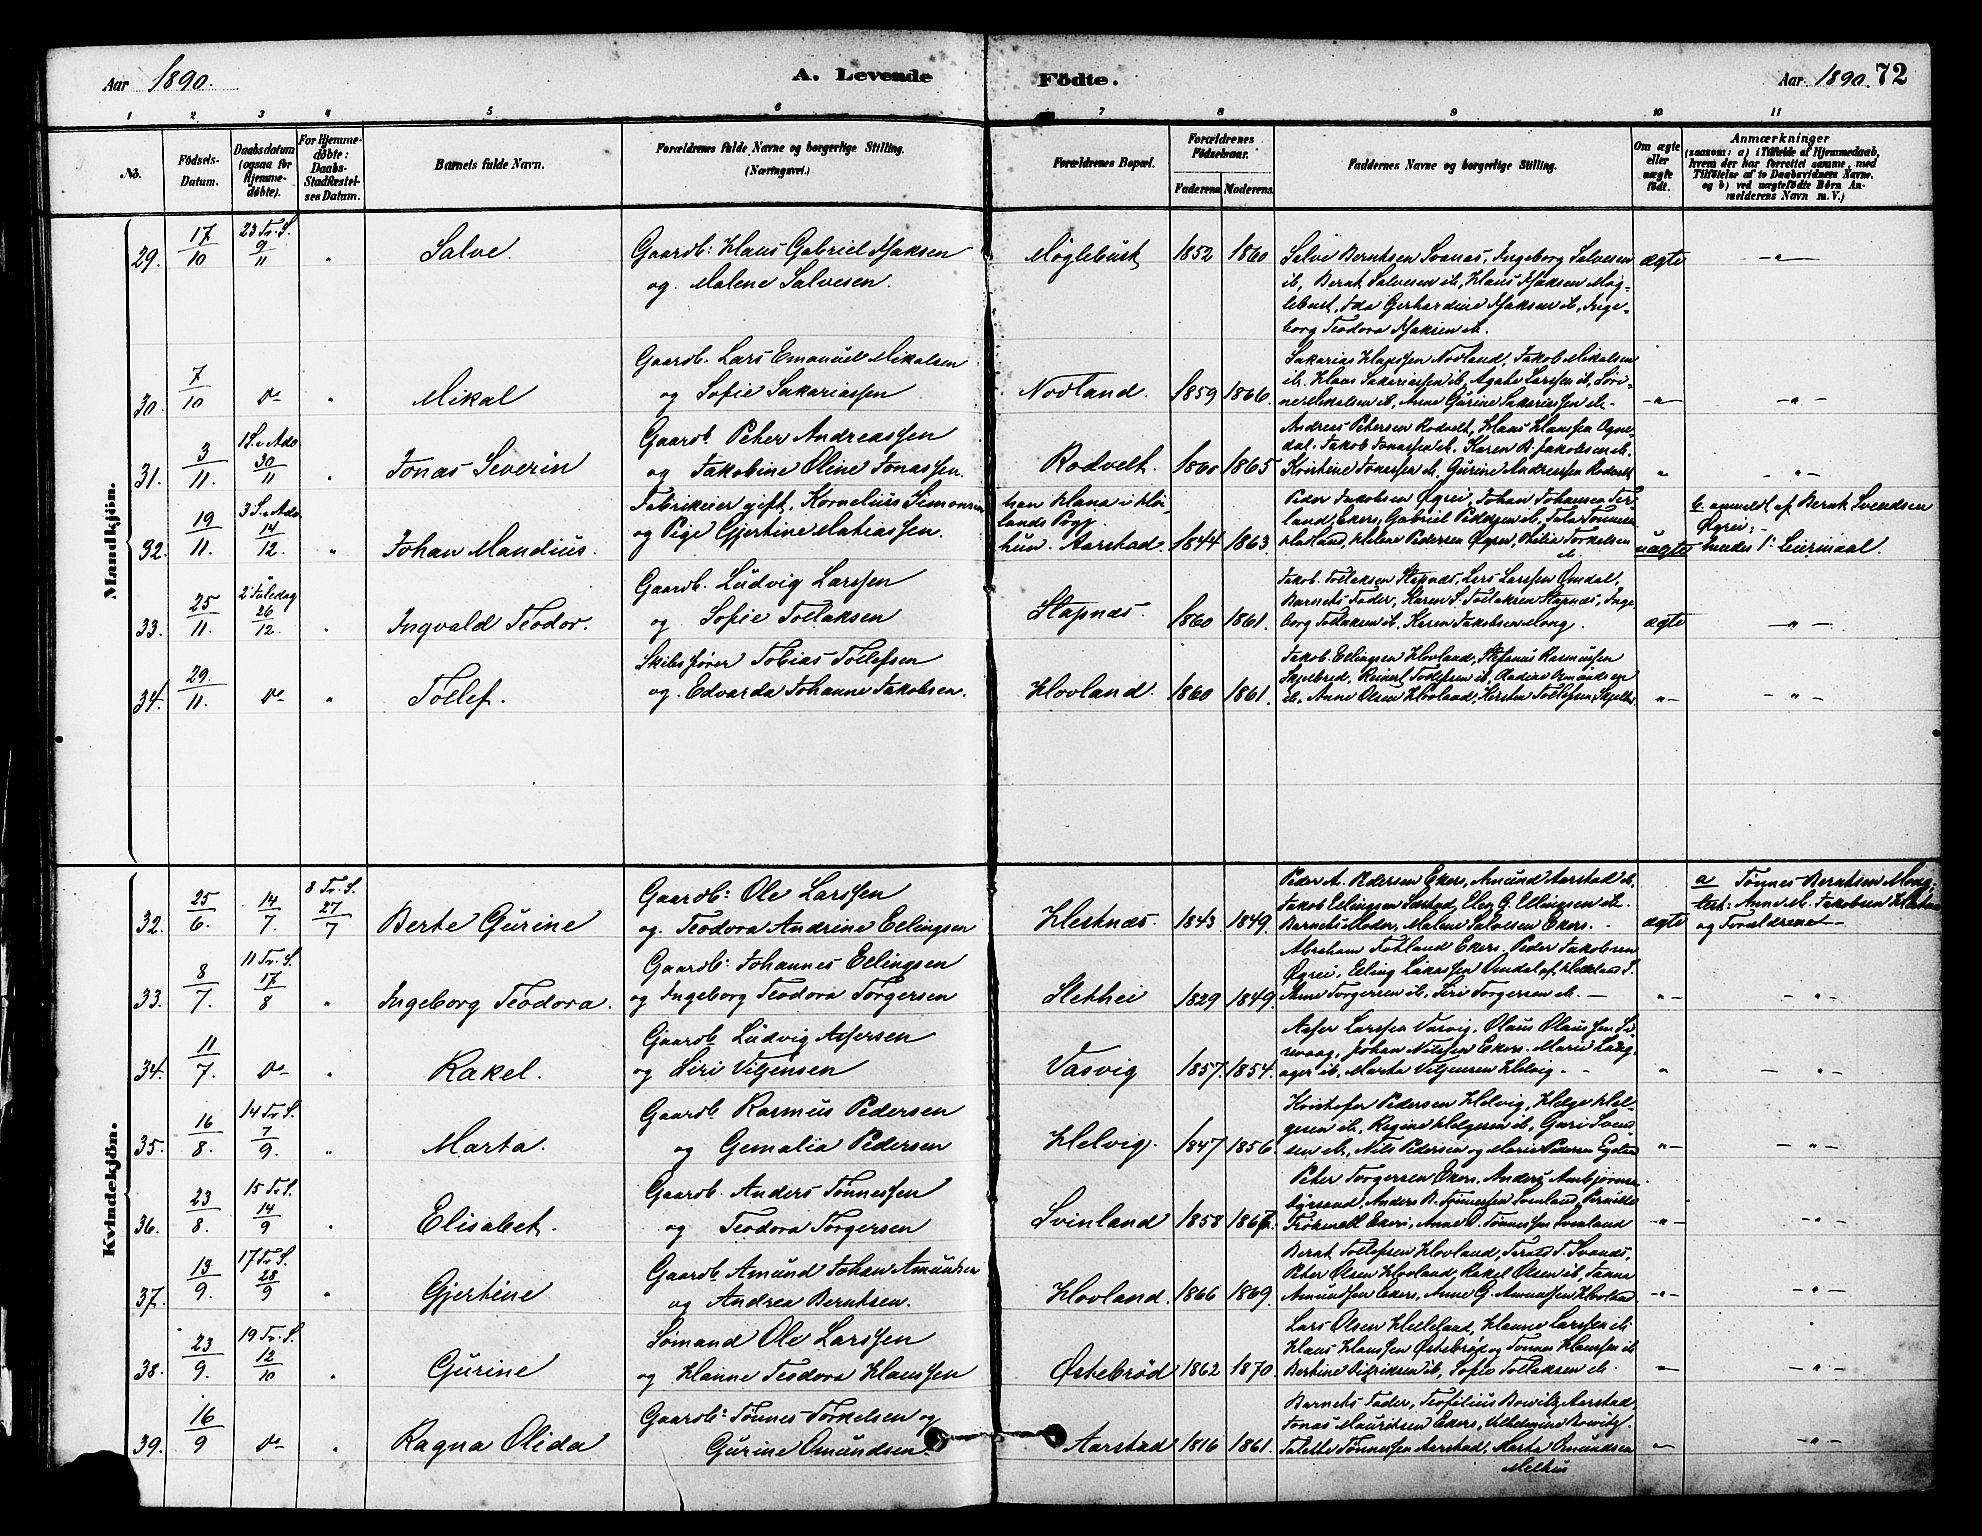 Aar 1890.
A. Levende Födte.
Aar 1890. 72
1 2 3 4 5 6 7 8 9 10 11
No. Födsels-Datum. Daabsdatum (ogsaa for Hjemmedöbte). For Hjemmedöbte: Daabs-Stadfæstelses Datum. Barnets fulde Navn. Forældrenes fulde Navne og borgerlige Stilling. (Næringsvei.) Forældrenes Bopæl. Forældrenes Födselsaar. Faderens. Moderens. Faddernes Navne og borgerlige Stilling. Om ægte eller uægte födt. Anmærkninger (saasom: a) i Tilfælde af Hjemmedaab, hvem der har forrettet samme, med Tilföielse af to Daabsvidners Navne, og b) ved uægtefödte Börn Anmelderens Navn m. V.)
Mandkjön.
29. 17/10 23 Tr. S. 9/11 " Salve. Gaardb: Klaus Gabriel Isaksen
og Malene Salvesen. Møglebust 1852 1860 Salve Berntsen Svanæs, Ingeborg Salvesen
ib, Bernt Salvesen ib, Klaus Isaksen Møg-
lebust, Ida Gerhardine Isaksen ib, Inge-
borg Teodora Isaksen ib. ægte — " —
30. 7/10 do " Mikal Gaardb. Lars Emanuel Mikalsen
og Sofie Sakariassen Nodland. 1859 1866. Sakarias Klaussen Nodland, Jakob Mikalsen
ib. Klaus Sakariassen ib, Agate Larssen ib, Søri-
ne Mikalsen ib, Anne Gurine Sakariassen ib. - — " — — " —
31. 3/11. 1 S. i Adv. 30/11 " Jonas Severin Gaardb. Peter Andreassen
og Jakobine Oline Jonassen. Rodvelt. 1860 1865 Andreas Petersen Rodvelt, Klaus Klaussen Ogne-
dal. Jakob Jonassen ib. Karen B. Jakobsen ib.
Kristine Jonassen ib, Gurine Andreassen Rodvelt " — " —
32. 19/11. 3 S. i Adv. 14/12. " Johan Mandius. Fabrikeier gift, Kornelius Simonsen
og Pige Gjertine Matiassen. han Klana i Høi-
lands Pgj.
hun. Aarstad. 1844 1863. Peder Jakobsen Øgrei, Johan Johansen
land, Ekers, Gabriel Pedersen ib,
Helene Pedersen Øgrei, Torkelsen
ib. uægte b. anmeldt af Bernt Svendsen
Øgrei;
hendes 1ste Leiermaal.
33. 25/11. 2 Juledag 26/12. " Ingvald Teodor. Gaardb. Ludvig Larssen
og Sofie Tollaksen Stapnæs. 1860 1861. Jakob Tollaksen Stapnæs, Lars Larssen Omdal,
Barnets Fader, Karen S. Tollaksen Stapnæs, Inge-
borg Tollaksen ib. Karen Jakobsen Mong. ægte — " —
34. 29./11. do " Tollef. Skibsfører Tobias Tollefsen
og Edvarda Johanne Jakobsen. Hovland. 1860 1861. Jakob Ellingsen Hovland, Stefanus Rasmussen
Skjelbred, Reinert Tollefsen ib,
ib. Anne Olsen Hovland, Kirsten Tollefsen, Skjelbr. — " — — " —
Kvindekjön.
32. 25/6. 14/7. 8 Tr. S. 27/7 Berte Gurine Gaardb: Ole Larssen
og Teodora Andrine Ellingsen Hestnæs. 1843 1849. Peder A. Pedersen Ekers, Amund Aarstad ib.
Jakob Ellingsen Aarstad, Elen G. Ellingsen ib.
Barnets Moder, Malene Salvesen Ekers. - ægte a Tønnes Berntsen Mong;
test: Anne M. Jakobsen Hestnæs
og Forældrene —
33. 8/7. 11 Tr. S. 17/8 " Ingeborg Teodora. Gaardb: Johannes Ellingsen
og Ingeborg Teodora Torgersen Slethei 1829 1849. Abraham Tokland Ekers. Peder Jakobsen
Øgrei, Elling Lukassen Omdal af Helleland S.
Anne Torgersen ib, Siri Torgersen ib. — " — " —
34. 11/7. do " Rakel. Gaardb Ludvig Assersen
og Siri Viljensen Vasvig 1857. 1854. Asser Larssen Vasvig, Olaus Olaussen Si-
revaag, Johan Nilssen Ekers. Marie Lang-
ager ib, Marta Viljensen Helvig — " — " —
35. 16/8. 14 Tr. S. 7/9. " Marta. Gaardb Rasmus Pedersen
og Gemalia Pedersen Helvig. 1847 1856. Kristofer Pedersen Helvig, Helge Hel-
gesen ib, Regine Helgesen ib, Guri Svend
sen ib, Nils Pedersen og Marie Pedersen — " — — " —
36. 23/8. 15 Tr. S. 14/9 " Elisabet. Gaardb. Anders Tønnessen
og Teodora Torgersen Svinland 1858 1867. Peter Torgersen Ekers. Anders Ambjørnsen
Anders B. Tønnessen Svinland,
Ekers, Anne O. Tønnessen Svinland — " — — " —
37. 13/9. 17 Tr. S. 28/9 " Gjertine Gaardb Amund Johan Amundsen
og Andrea Berntsen. Hovland. 1866 1869. Bernt Tollefsen Hovland, T. Svanæs,
Peter Olsen Hovland, Rakel Olsen ib,
Amundsen Ekers, Anne G. Amundsen Hovland — " — — " —
38. 23/9. 19 Tr. S. 12/10 " Gurine Sømand Ole Larssen
og Hanne Teodora Klaussen Østebrød 1862 1870. Lars Olsen Helleland, Hanne Larssen ib.
Klaus Klaussen Østebrød og Tønnes Klaussen ib
Bertine Sigfridsen ib, Sofie Tollaksen ib. — " — — " —
39. 16/9 do " Ragna Olida Gaardb: Tønnes Torkelsen og
Gurine Omundsen. Aarstad 1816 1861. Barnets Fader, Teofilius Bowitz Aarstad
Jonas Mauritsen Ekers, Vilhelmine Bowitz.
Talette Tønnessen Aarstad, Marta Omundsen
Melhus — " — — " —